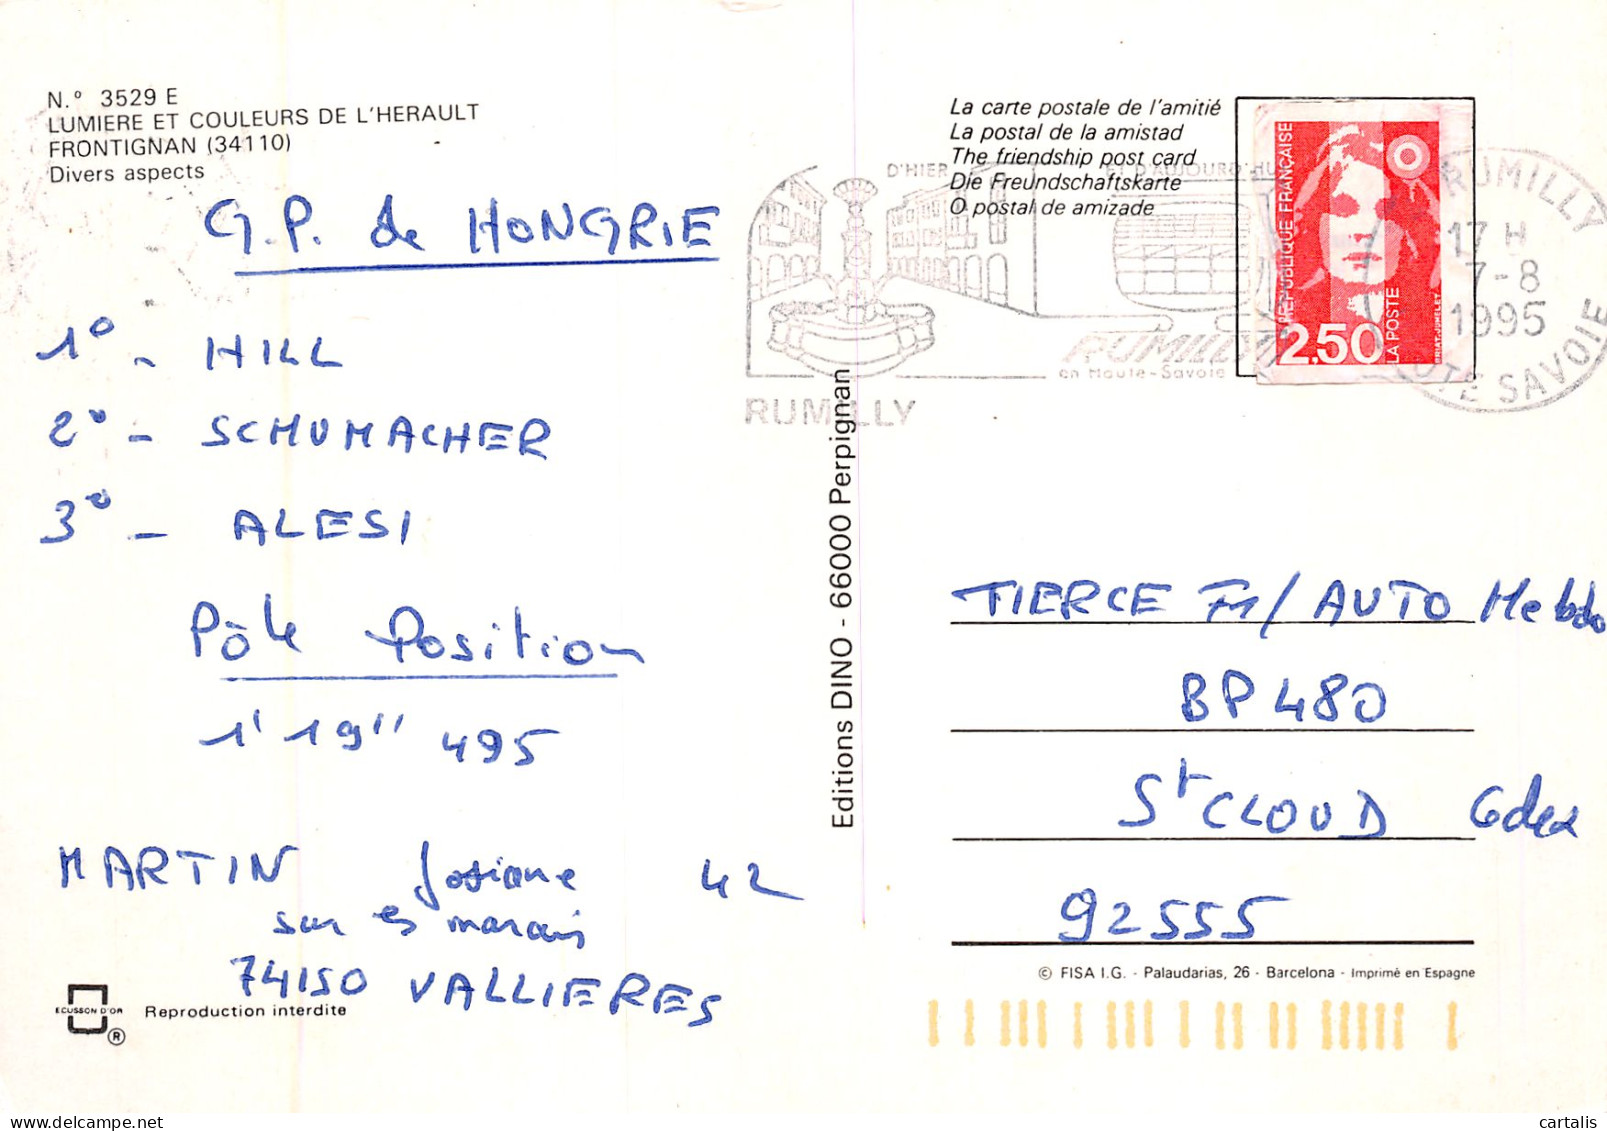 N.º 3529 E
LUMIERE ET COULEURS DE L'HERAULT
FRONTIGNAN (34110)
Divers aspects
G.P. de HONGRIE
1° - HILL
2° - SCHUMACHER
3° - ALESI
Pôle Position
1' 19'' 495
MARTIN Josiane 42
sur es marais
74150 VALLIERES
ECUSSON D'OR
®
Reproduction interdite
Editions DINO - 66000 Perpignan
La carte postale de l'amitié
La postal de la amistad
The friendship post card
Die Freundschaftskarte
O postal de amizade
D'HIER ET D'AUJOURD'HU
RUMILLY
en Haute-Savoie
RUMILLY
REPUBLIQUE FRANÇAISE
2.50
LA POSTE
BRIAT-JUMELET
RUMILLY
17 H
7-8
1995
HAUTE SAVOIE
TIERCE F1/ AUTO Hebdo
BP 480
St CLOUD Cedex
92555
© FISA I.G. - Palaudarias, 26 - Barcelona - Imprimé en Espagne
cartalis